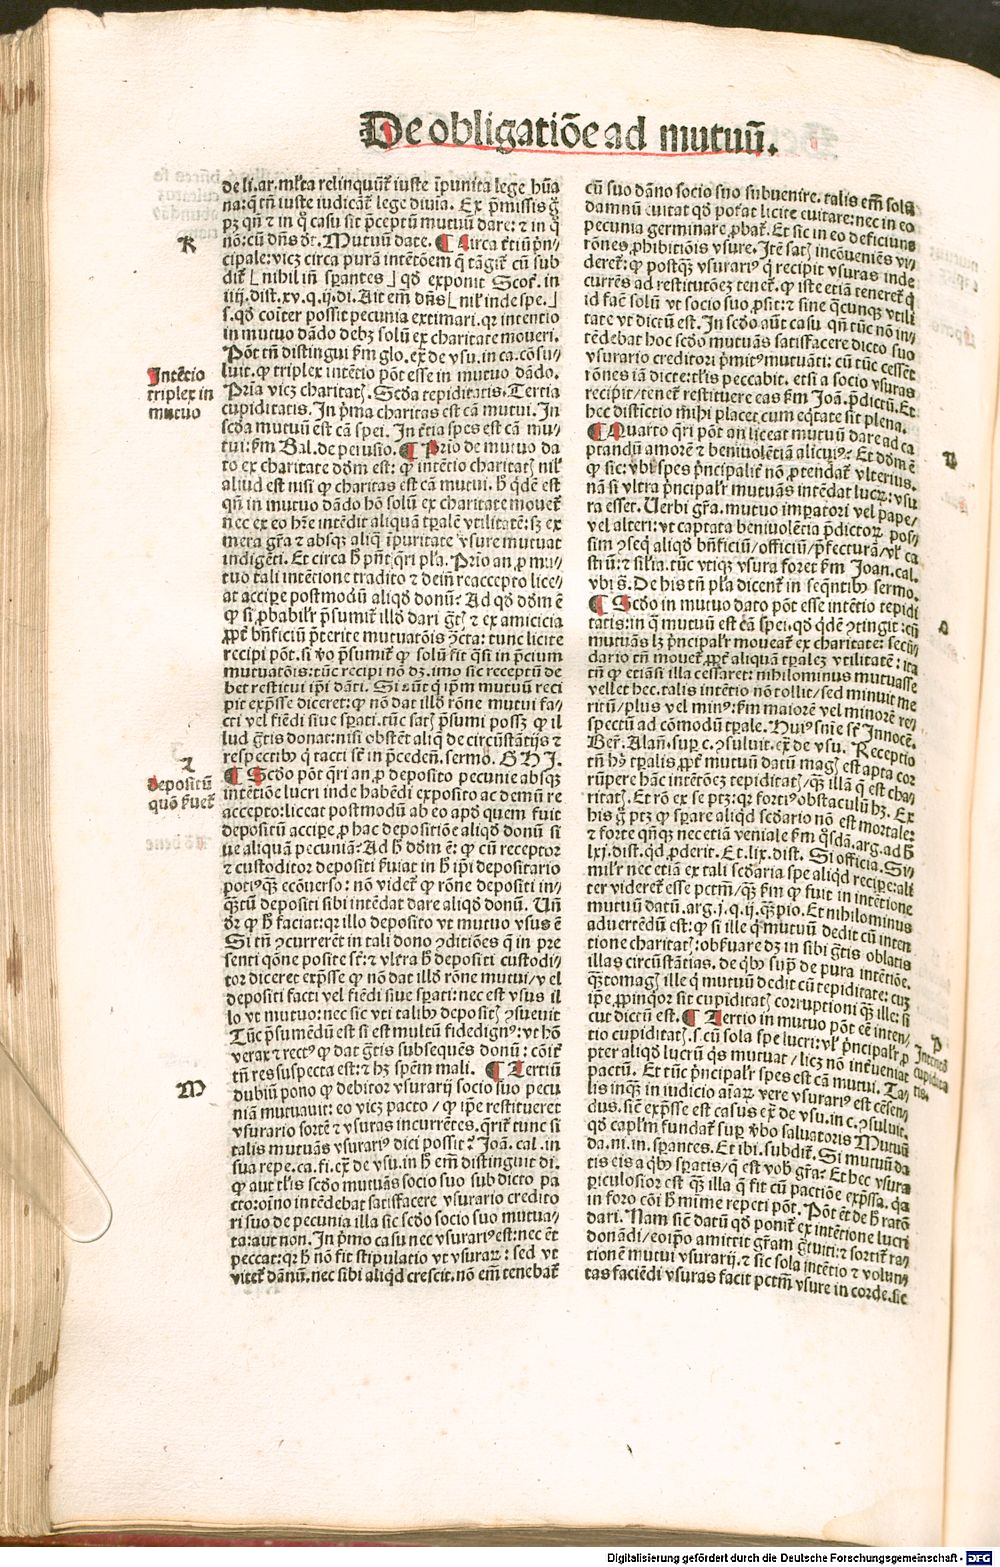 De obligatiõe ad mutuũ.
de li. ar. ml'ta relinquũt̃ iuste ĩpunita lege hũa
na: q̃ tñ iuste iudicãt̃ lege diuia. Ex p̃missis g̃
pꝫ qñ ⁊ in q̊ casu sit p̃ceptũ mutuũ dare: ⁊ in q̊
K
nõ: cũ dñs d̃t. Mutuũ date. ¶ Circa t̃tiũ p̃n-
cipale: vicꝫ circa purã intẽtõem q̃ tãgit̃ cũ sub
dit̃ [nihil iñ sp̃antes] qď exponit Scoꝰ. in
iiij. dist. xv. q. ij. di. Ait em̃ dñs [nil' inde spe.]
s. qď cõiter possit pecunia extimari. qꝛ intentio
in mutuo dãdo debꝫ solũ ex charitate moueri.
Põt tñ distingui ẜm glo. ex̃ de vsu. in ca. cõsu//
Intẽtio
triplex in
mutuo
luit. ꝙ triplex intẽtio põt esse in mutuo dãdo.
Prĩa vicꝫ charitatꝭ. Scďa tepiditatis. Tertia
cupiditatis. In p̃ma charitas est cã mutui. In
scďa mutuũ est cã spei. In t̃tia spes est cã mu//
tui: ẜm Bal. de perusio. ¶ Prĩo de mutuo da
to ex charitate dõm est: ꝙ intẽtio charitatꝭ nil'
aliud est nisi ꝙ charitas est cã mutui. h̃ q̃dẽ est
qñ in mutuo dãdo hõ solũ ex charitate mouet̃
nec ex eo hr̃e intẽdit aliquã tp̃alẽ vtilitatẽ: sꝫ ex
mera gr̃a ⁊ absqꝫ aliq̃ ĩpuritate vsure mutuat
indigẽti. Et circa h̃ pñt q̃ri pl'a. Prĩo an ꝓ mu//
tuo tali intẽtione tradito ⁊ deiñ reaccepto lice//
at accipe postmodũ aliqď donũ? Ad qď dõm ẽ
ꝙ si ꝓbabilr̃ p̃sumit̃ illď dari g̃tꝭ ⁊ ex amicicia
ꝓpt̃ bñficiũ p̃terite mutuatõis ꝯ̃cta: tunc licite
recipi põt. si ꝟo p̃sumit̃ ꝙ solũ fit q̃si in p̃cium
mutuatõis: tũc recipi nõ dꝫ. imo sic receptũ de
bet restitui ip̃i dãti. Si aũt q̃ ip̃m mutuũ reci
pit exp̃sse diceret: ꝙ nõ dat illď rõne mutui fa//
cti vel fiẽdi siue sp̃ati. tũc satꝭ p̃sumi possꝫ ꝙ il
lud g̃tis donat: nisi obstẽt aliq̃ de circũstãtijs ⁊
respectibꝰ q̃ tacti st̃ in p̃cedeñ. sermõ. G H I.
L
depositũ
quõ ẜuet̃
¶ Scďo põt q̃ri an ꝓ deposito pecunie absqꝫ
intẽtiõe lucri inde habẽdi exposito ac demũ re
accepto: liceat postmodũ ab eo apď quem fuit
depositũ accipe ꝓ hac depositiõe aliqď donũ si
ue aliquã pecuniã? Ad h̃ dõm ẽ: ꝙ cũ receptor
⁊ custoditor depositi ẜuiat in h̃ ip̃i depositario
potiꝰqꝫ ecõuerso: nõ videt̃ ꝙ rõne depositi in//
q̃ꝫtũ depositi sibi intẽdat dare aliqď donũ. Uñ
ďr ꝙ h̃ faciat: qꝛ illo deposito vt mutuo vsus ẽ
Si tñ ꝯcurrerẽt in tali dono ꝯditiões q̃ in pre
senti qõne posite st̃: ⁊ vltra h̃ depositi custodi//
tor diceret exp̃sse ꝙ nõ dat illď rõne mutui/ vel
depositi facti vel fiẽdi siue sp̃ati: nec est vsus il
lo vt mutuo: nec sic vti talibꝰ depositꝭ ꝯsueuit
Tũc p̃sumẽdũ est si est multũ fidedignꝰ: vt hõ
verax ⁊ rectꝰ ꝙ dat g̃tis subsequẽs donũ: cõit̃
tñ res suspecta est: ⁊ hꝫ spẽm mali. ¶ Tertiũ
M
dubiũ pono ꝙ debitor vsurarij socio suo pecu
niã mutuauit: eo vicꝫ pacto/ ꝙ ip̃e restitueret
vsurario sortẽ ⁊ vsuras incurrẽtes. q̃rit̃ tunc si
talis mutuãs vsurariꝰ dici possit? Joã. cal. in
sua repe. ca. fi. ex̃ de vsu. in h̃ em̃ distinguit di.
ꝙ aut tl'is scďo mutuãs socio suo sub dicto pa
cto: oĩno intẽdebat satisfacere vsurario credito
ri suo de pecunia illa sic scďo socio suo mutua-
ta: aut non. In p̃mo casu nec vsurariꝰ est: nec ẽt
peccat: qꝛ h̃ nõ fit stipulatio vt vsuraꝝ: sed vt
vitet̃ dãnũ. nec sibi aliqď crescit. nõ em̃ tenebat̃
cũ suo dãno socio suo subuenire. talis em̃ solũ
damnũ euitat qď poťat licite euitare: nec in eo
pecunia germinare ꝓbat̃. Et sic in eo deficiunt
rõnes ꝓhibitiõis vsure. Itẽ satꝭ incõueniẽs vi//
deret̃: ꝙ postqꝫ vsurariꝰ q̃ recipit vsuras inde
currẽs ad restitutõeꝫ tenet̃. ꝙ iste etiã teneret̃ q̃
id faẽ solũ vt socio suo ꝓsit: ⁊ sine q̃cunqꝫ vtili
tate vt dictũ est. In scďo aũt casu qñ tũc nõ in//
tẽdebat hoc scďo mutuãs satisfacere dicto suo
vsurario creditori p̃mitꝰ mutuãti: cũ tũc cessẽt
rõnes iã dicte: tl'is peccabit. etsi a socio vsuras
recipit/ tenet̃ restituere eas ẜm Joã. p̃dictũ. Et
hec distictio mihi placet cum eq̃tate sit plena.
N
¶ Quarto q̃ri põt an liceat mutuũ dare ad ca
ptandũ amorẽ ⁊ beniuolẽtiã alicuiꝰ? Et dõm ẽ
ꝙ sic: vbi spes p̃ncipalit̃ nõ ꝓtendat̃ vlterius.
nã si vltra p̃ncipalr̃ mutuãs intẽdat lucꝝ: vsu
ra esset. Uerbi gr̃a. mutuo imp̃atori vel pape/
vel alteri: vt captata beniuolẽtia p̃dictoꝝ pos//
sim ꝯseq̃ aliqď bñficiũ/ officiũ/ p̃fecturã/ vl' ca
stꝝ: ⁊ sil'ia. tũc vtiqꝫ vsura foret ẜm Joan. cal.
vbi s̃. De his tñ pl'a dicent̃ in seq̃ntibꝰ sermo.
O
¶ Scďo in mutuo dato põt esse intẽtio tepidi
tatis: in q̃ mutuũ est cã spei. qď q̃dẽ ꝯtingit: cũ
mutuãs lꝫ p̃ncipalr̃ moueat̃ ex charitate: secũ//
dario tñ mouet̃ ꝓpt̃ aliquã tp̃aleꝫ vtilitatẽ: ita
tñ ꝙ etiãsi illa cessaret: nihilominus mutuasse
vellet hec. talis intẽtio nõ tollit/ sed minuit me
ritũ/ plus vel minꝰ: ẜm maiorẽ vel minorẽ re//
spectũ ad cõmodũ tp̃ale. Huiꝰ sñie st̃ Innocẽ.
Ber. Alañ. sup c. ꝯsuluit. ex̃ de vsu. Receptio
tñ hꝰ tp̃alis ꝓpt̃ mutuũ datũ magꝭ est apta cor
rũpere hãc intẽtõeꝫ tepiditatꝭ/ q̃ꝫ illã q̃ est cha//
ritatꝭ. Et rõ ex se ptꝫ: qꝛ fortiꝰ obstaculũ hꝫ. Ex
his g̃ ptꝫ ꝙ sp̃are aliqď scďario nõ est mortale:
⁊ forte qñqꝫ nec etiã veniale ẜm q̃sdã. arg. ad h̃
lxj. dist. qd ꝓderit. Et. lix. dist. Si officia. Si-
milr̃ nec etiã ex tali scďaria spe aliqď recipe: ali
ter videret̃ esse pctm̃/ q̃ꝫ ẜm ꝙ fuit in intẽtione
mutuũ datũ. arg. j. q. ij. q̃ꝫpio. Et nihilominus
aduertẽdũ est: ꝙ si ille q̃ mutuũ dedit cũ inten
tione charitatꝭ: obẜuare dꝫ in sibi g̃tis oblatis
illas circũstãtias. de q̃bꝰ sup̃ de pura intẽtiõe.
q̃ꝫtomagꝭ ille q̃ mutuũ dedit cũ tepiditate: cuꝫ
ip̃e ꝓpinqor sit cupiditatꝭ corruptioni q̃ꝫ ille: si
cut dictũ est. ¶ Tertio in mutuo põt eẽ inten//
P
Intẽtio
cupidita
tis.
tio cupiditatꝭ. s. cũ sola spe lucri: vl' p̃ncipalr̃ ꝓ
pter aliqď lucrũ q̃s mutuat/ licꝫ nõ intꝰueniat
pactũ. Et tũc p̃ncipalr̃ spes est cã mutui. Ta//
lis inqꝫ in iudicio aĩaꝝ vere vsurariꝰ est cẽsen//
dus. siẽ exp̃sse est casus ex̃ de vsu. in c. ꝯsuluit.
qď capl'm fundat̃ sup ꝟbo saluatoris Mutuũ
da. ni. in. sp̃antes. Et ibi. subdit̃. Si mutuũ da
tis eis a q̃bꝰ sp̃atis/ q̃ est vob̃ gr̃a? Et hec vsura
piculosior est q̃ꝫ illa q̃ fit cũ pactiõe exp̃ssa. q̃a
in foro cõi h̃ mĩme repeti põt. Põt ẽt de h̃ ratõ
dari. Nam siẽ datũ qď ponit̃ ex intẽtione lucri
donãdi/ eoip̃o amittit gr̃am g̃tuiti: ⁊ sortit̃ ra//
tionẽ mutui vsurarij. ⁊ sic sola intẽtio ⁊ volun//
tas faciẽdi vsuras facit pctm̃ vsure in corde. sic
Digitalisierung gefördert durch die Deutsche Forschungsgemeinschaft - DFG